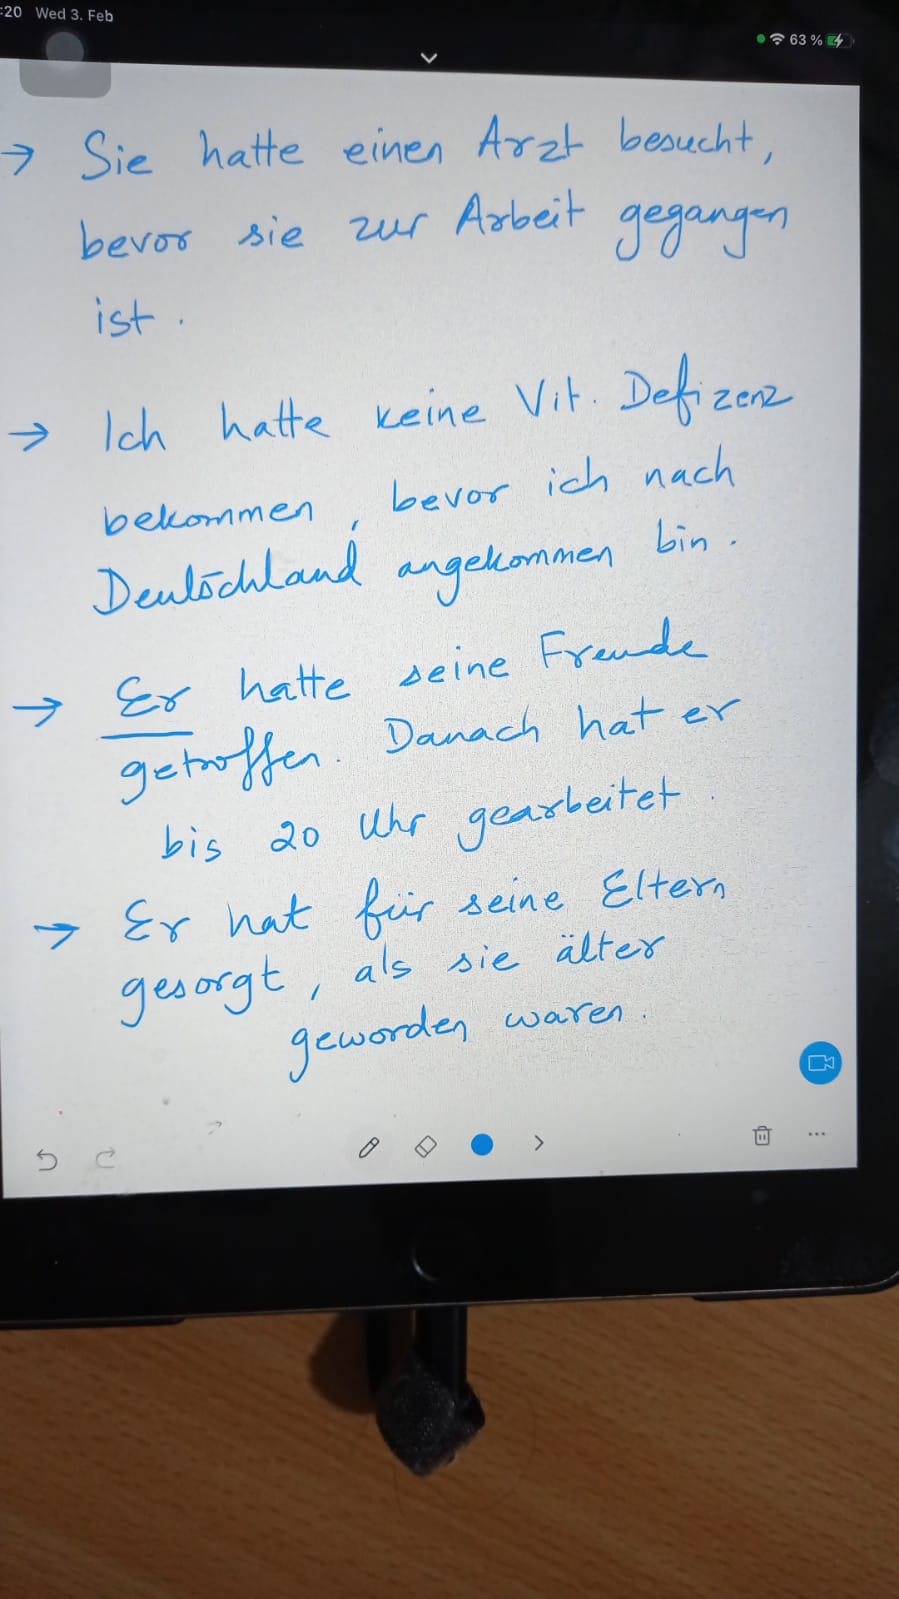 :20 Wed 3. Feb
63 %
→ Sie hatte einen Arzt besucht,
bevor sie zur Arbeit gegangen
ist.
→ Ich hatte keine Vit. Defizenz
bekommen, bevor ich nach
Deutschland angekommen bin.
→ Er hatte seine Freunde
getroffen. Danach hat er
bis 20 Uhr gearbeitet.
→ Er hat für seine Eltern
gesorgt, als sie älter
geworden waren.